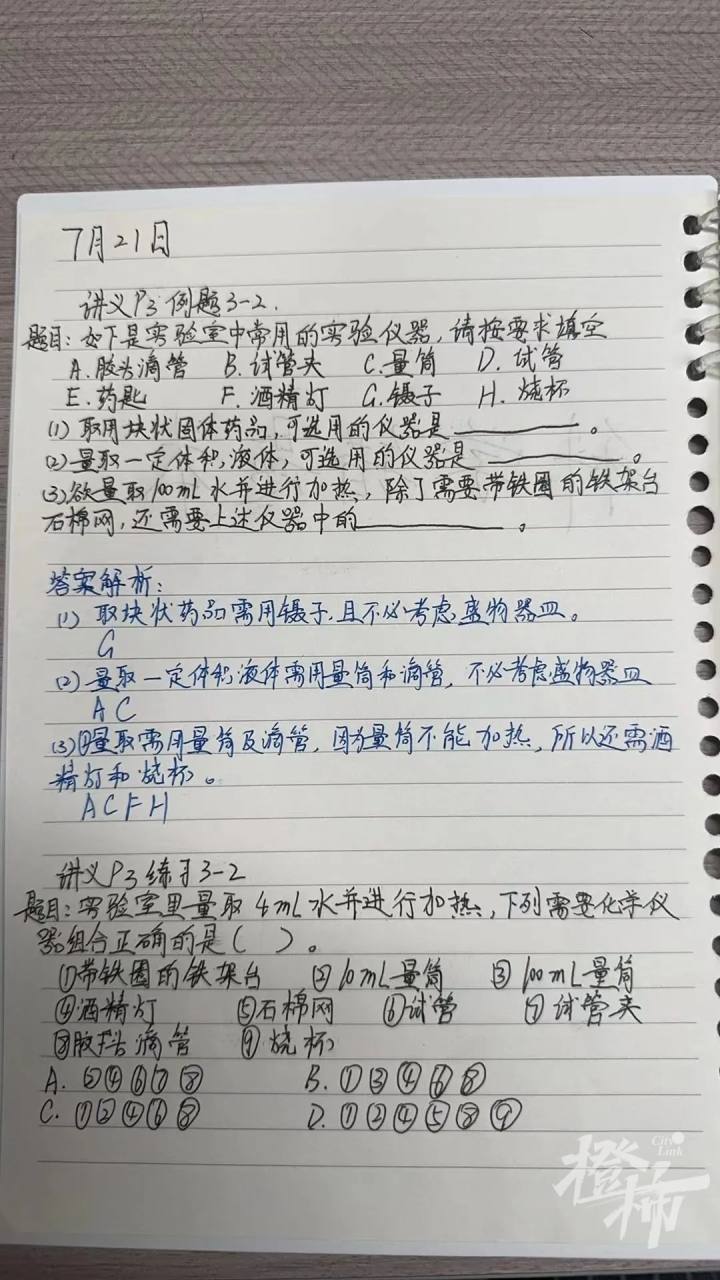 7月21日
讲义P3 例题3-2.
题目: 如下是实验室中常用的实验仪器, 请按要求填空
A. 胶头滴管 B. 试管夹 C. 量筒 D. 试管
E. 药匙 F. 酒精灯 G. 镊子 H. 烧杯
(1) 取用块状固体药品, 可选用的仪器是________。
(2) 量取一定体积液体, 可选用的仪器是________。
(3) 欲量取100mL水并进行加热, 除了需要带铁圈的铁架台
石棉网, 还需要上述仪器中的________。
答案解析:
(1) 取块状药品需用镊子, 且不必考虑盛物器皿。
G
(2) 量取一定体积液体需用量筒和滴管, 不必考虑盛物器皿
A C
(3) 量取需用量筒及滴管, 因为量筒不能加热, 所以还需酒
精灯和烧杯。
A C F H
讲义P3 练习3-2
题目: 实验室里量取4mL水并进行加热, 下列需要化学仪
器组合正确的是( )。
①带铁圈的铁架台 ②10mL量筒 ③100mL量筒
④酒精灯 ⑤石棉网 ⑥试管 ⑦试管夹
⑧胶头滴管 ⑨烧杯
A. ②④⑥⑦⑧ B. ①③④⑥⑧
C. ①②④⑥⑧ D. ①②④⑤⑧⑨
City Link
橙柿